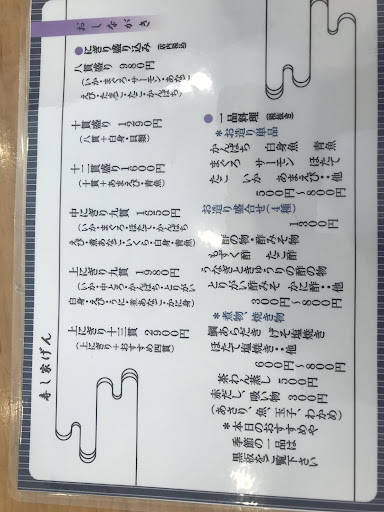 おしながき
●にぎり盛り込み
八貫盛り 980円
(いか・まぐろ・サーモン・あなご
えび・たまご・たこ・かんぱち)
十貫盛り 1250円
(八貫+白身・貝類)
十二貫盛り 1600円
(十貫+あまえび・青魚)
中にぎり九貫 1650円
(いか・まぐろ・ほたて・かんぱち
えび・煮あなご・いくら・白身・青魚)
上にぎり十貫 1980円
(いか・中とろ・かんぱち・とりがい
白身・えび・うに・煮あなご・かに身)
上にぎり十三貫 2900円
(上にぎり+おすすめ四貫)
●一品料理
*お造り単品
かんぱち 白身魚 青魚
まぐろ サーモン ほたて
たこ いか あまえび・他
500円~800円
お造り盛合せ(4種)
1300円
*酢の物・酢みそ物
もずく酢 たこ酢
うなぎときゅうりの酢の物
とりがい酢みそ かに酢・他
300円~800円
*煮物、焼き物
鯛あらだき げそ塩焼き
ほたて塩焼き・他
600円~800円
茶わん蒸し 500円
赤だし、吸い物 300円
(あさり、魚、玉子、わかめ)
*本日のおすすめや
季節の一品は
黒板をご覧下さい
寿し家げん